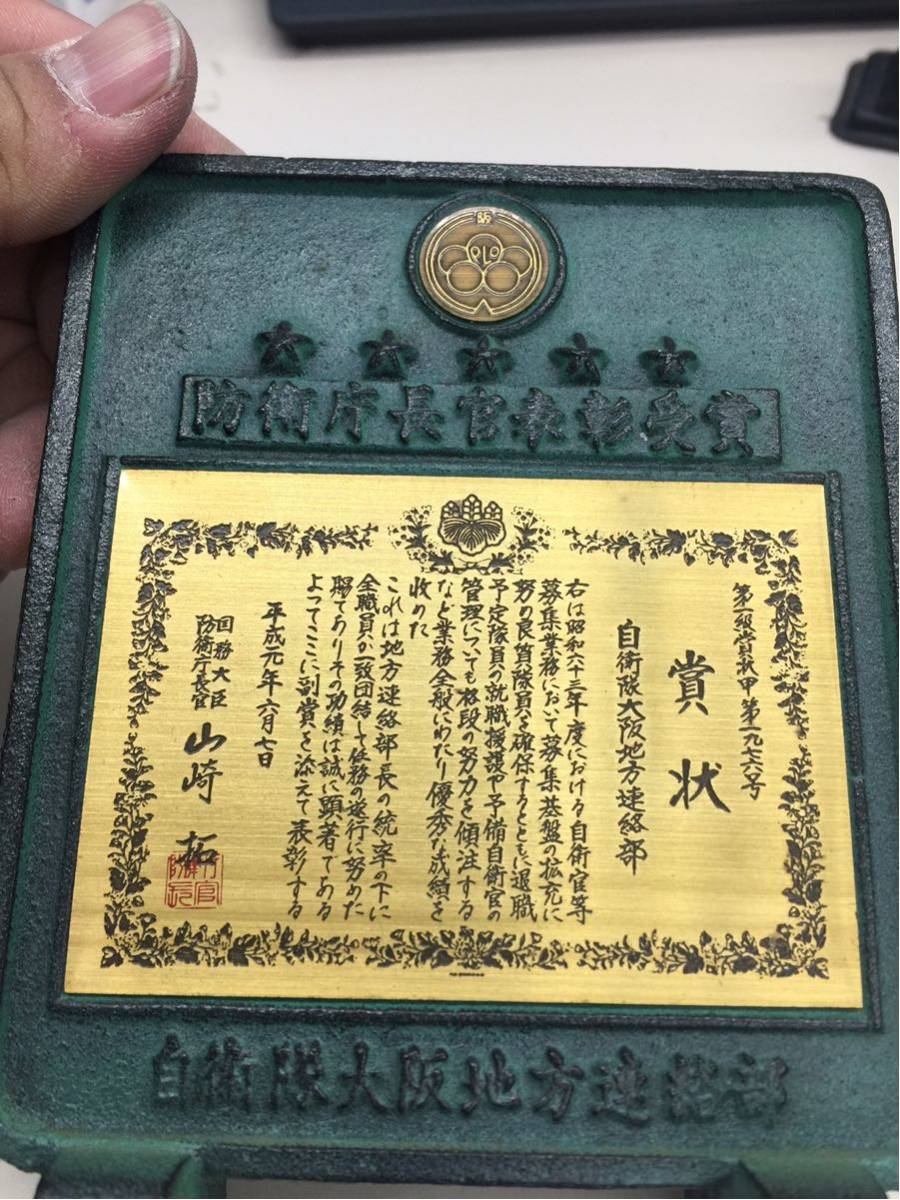 阪
PLO
防衛庁長官表彰受賞
第一級賞状甲第一九七六号
賞状
自衛隊大阪地方連絡部
右は昭和六十三年度における自衛官等
募集業務において募集基盤の拡充に
努め良質隊員を確保するとともに退職
予定隊員の就職援護や予備自衛官の
管理についても格段の努力を傾注する
など業務全般にわたり優秀な成績を
収めた
これは地方連絡部長の統率の下に
全職員が一致団結して任務の遂行に努めた
賜でありその功績は誠に顕著である
よってここに副賞を添えて表彰する
平成元年六月七日
国務大臣
防衛庁長官
山崎拓
自衛隊大阪地方連絡部